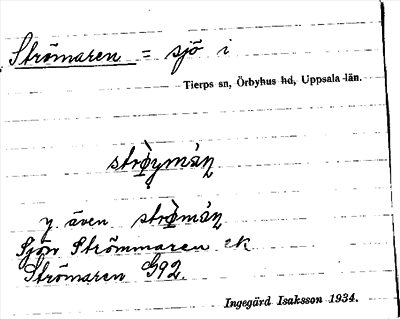 Strömaren = sjö i
Tierps sn, Örbyhus hd, Uppsala län.
y även
Sjön Strömmaren ek
Strömaren G92.
Ingegärd Isaksson 1934.